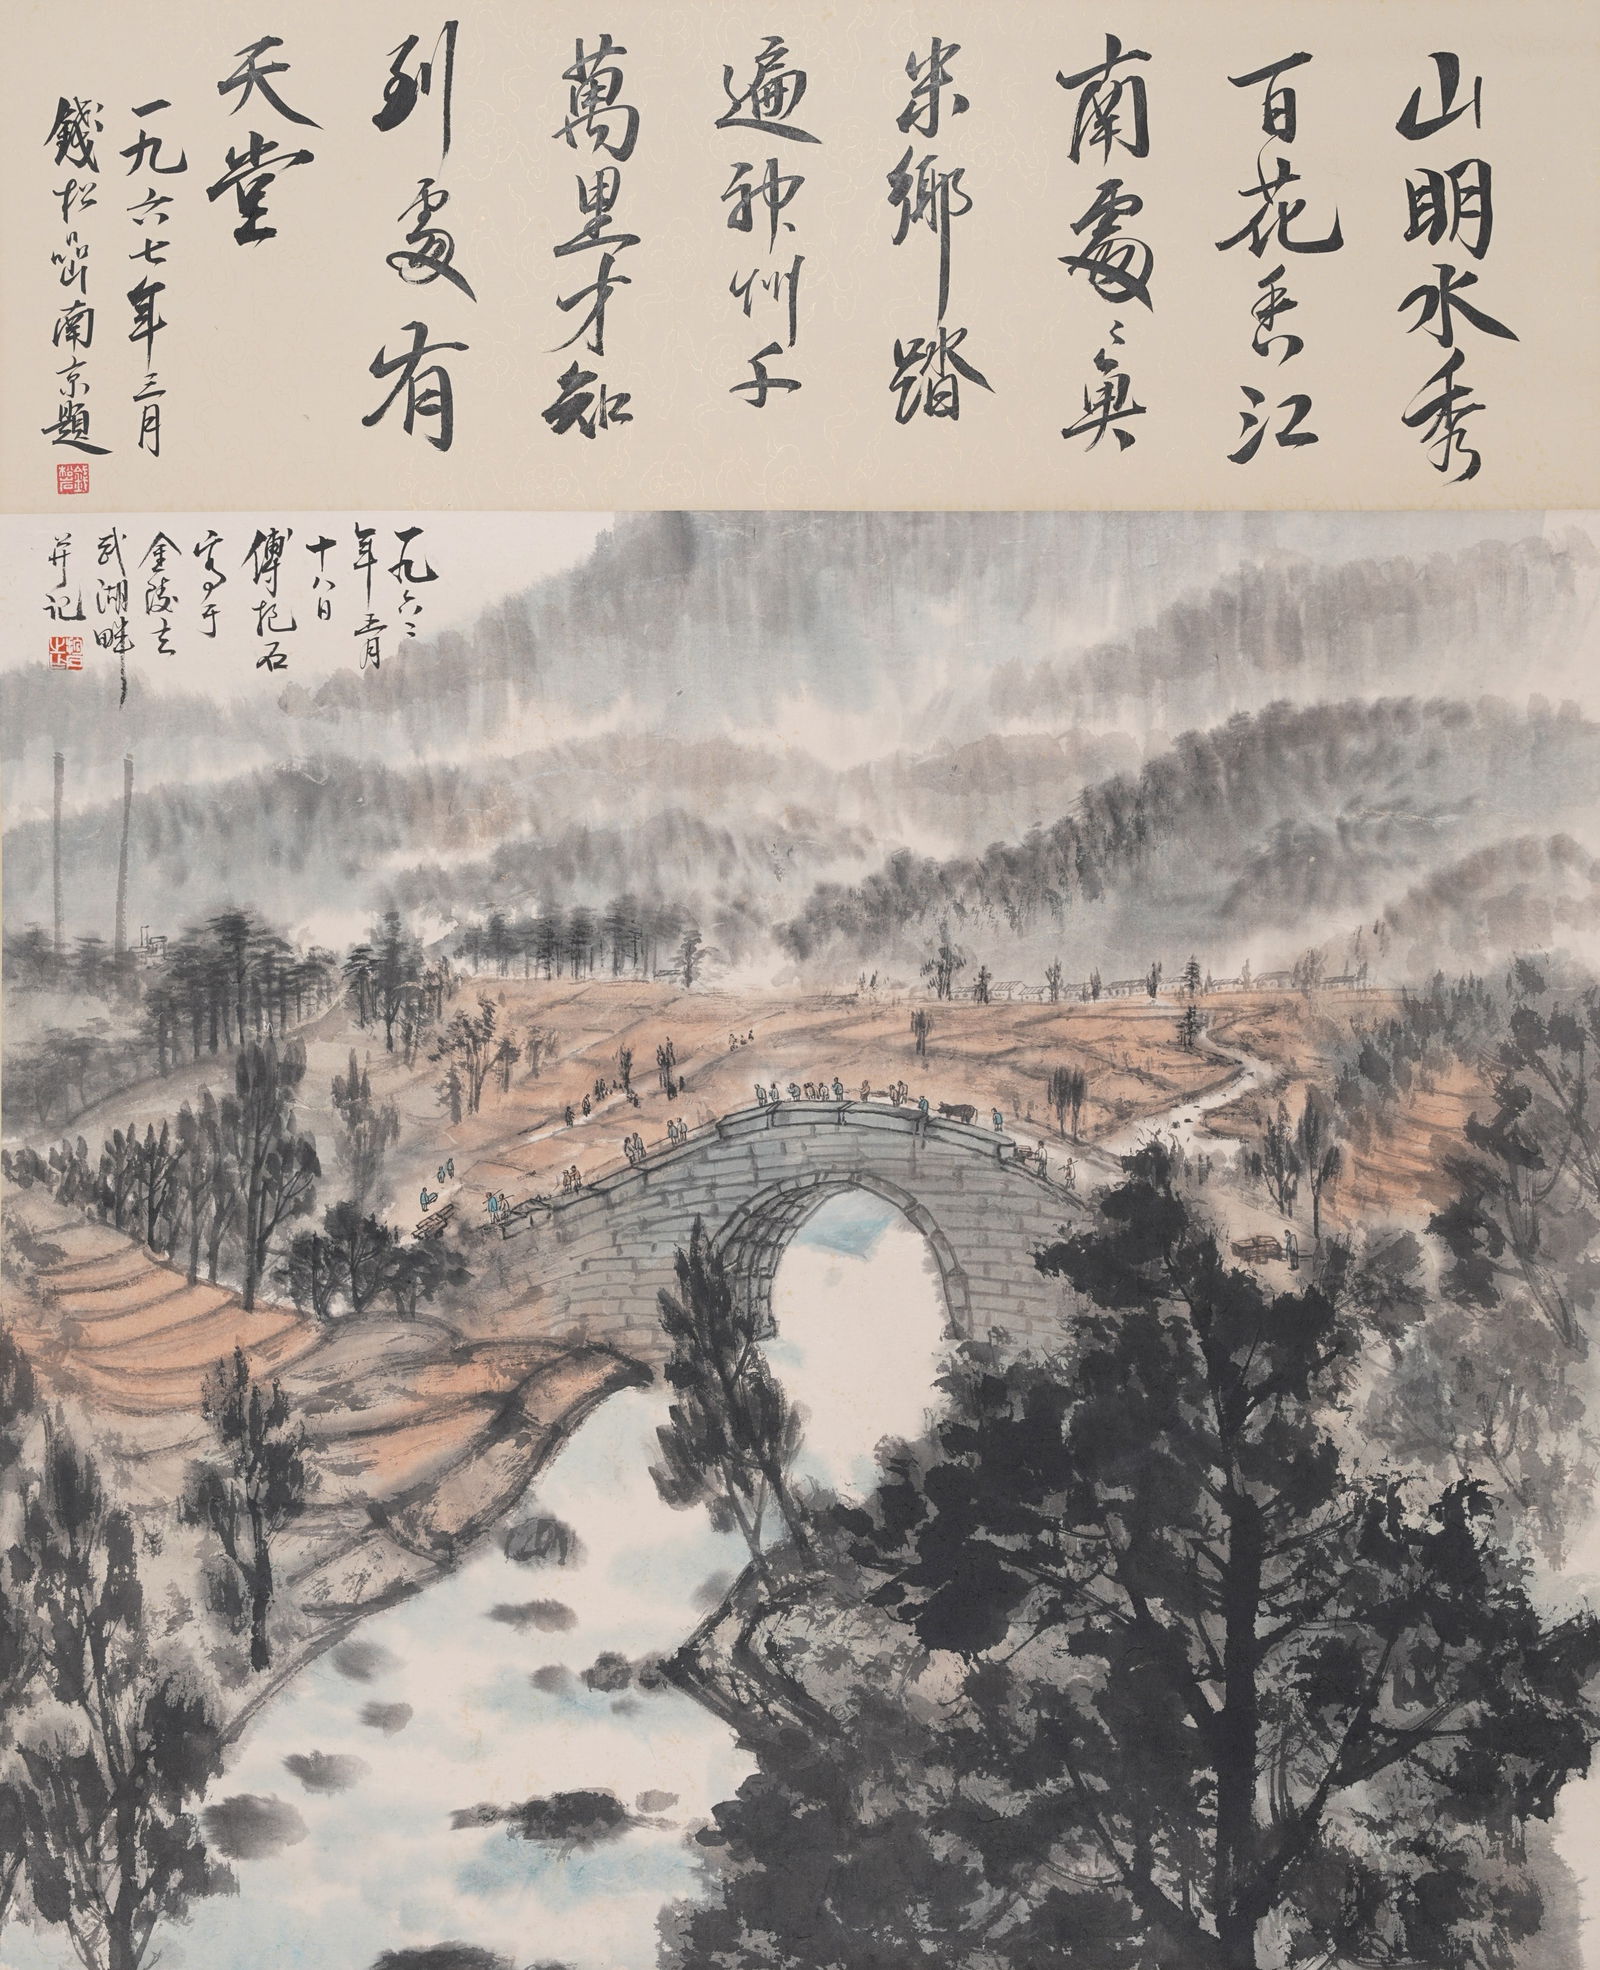 山明水秀
百花香江
南處〻魚
米鄉踏
遍神州千
萬里才知
到處有
天堂
一九六七年三月
錢松嵒南京題
錢松嵒
一九六二
年五月
十八日
傅抱石
寫于
金陵玄
武湖畔
并记